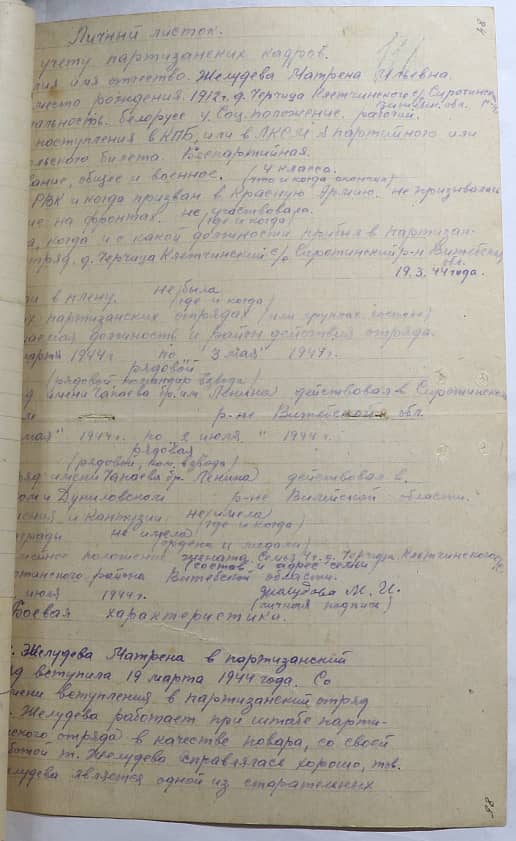 98
Личный листок.
учету партизанских кадров.
лия имя отчество. Желудева Матрена Ильевна.
место рождения. 1912 г. д. Черчица Клетчинского с/с Сиротинск
Витебск. обл. р-н
альность. белорусс 4. Соц. положение. рабочий.
поступления в КПБ, или в ЛКСМ партийного или
льского билета. Безпартийная.
вание, общее и военное. 4 класса.
(что и когда окончил)
РВК и когда призван в Красную Армию. не призывалась
ие на фронтах. не участвовала.
(где и когда)
а, когда и с какой должности прибыл в партизан-
тряд. д. Черчица Клетчинский с/с Сиротинский р-н Витебск
обл.
19.3.44 года.
ли в плену. не была
(где и когда)
их партизанских отрядах (или группах
маемая должность и район действия отряда.
марта 1944 г. по "3 мая" 1944 г.
рядовой
(рядовой, командир взвода)
д имени Чапаева бр. им Ленина действовал в Сиротинском
ом р-не Витебской обл.
мая" 1944 г. по "2 июля" 1944 г.
рядовая
(рядовой, ком. взвода)
ряд имени Чапаева бр. Ленина действовал в.
ком и Дуниловском р-не Вилейской области.
нения и контузии не имела
(где и когда)
аграды не имела
(ордена и медали)
мейное положение замужем. Семья 4 ч. д. Черчица Клетчинского с/с
(состав и адрес семьи)
отинского района Витебской области.
июля 1944 г. Желудова М. И.
(личная подпись)
Боевая характеристика.
. Желудева Матрена в партизанский
яд вступила 19 марта 1944 года. Со
мени вступления в партизанский отряд
. Желудева работает при штабе парти-
нского отряда в качестве повара, со своей
ботой т. Желудева справлялась хорошо, тов.
елудева является одной из старательных
98